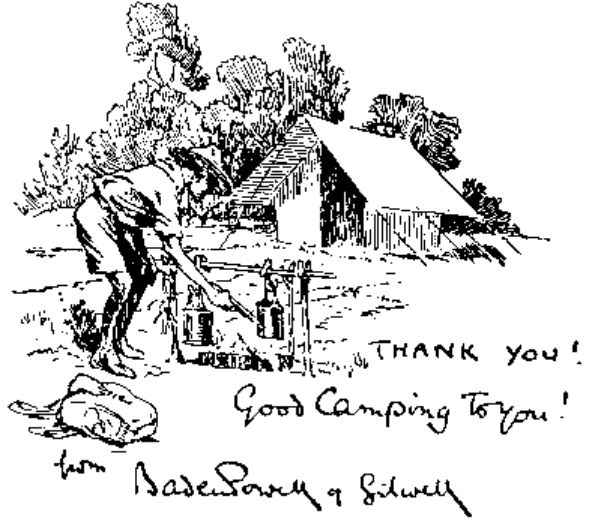 THANK YOU!
Good Camping To you!
from
Baden Powell of Gilwell